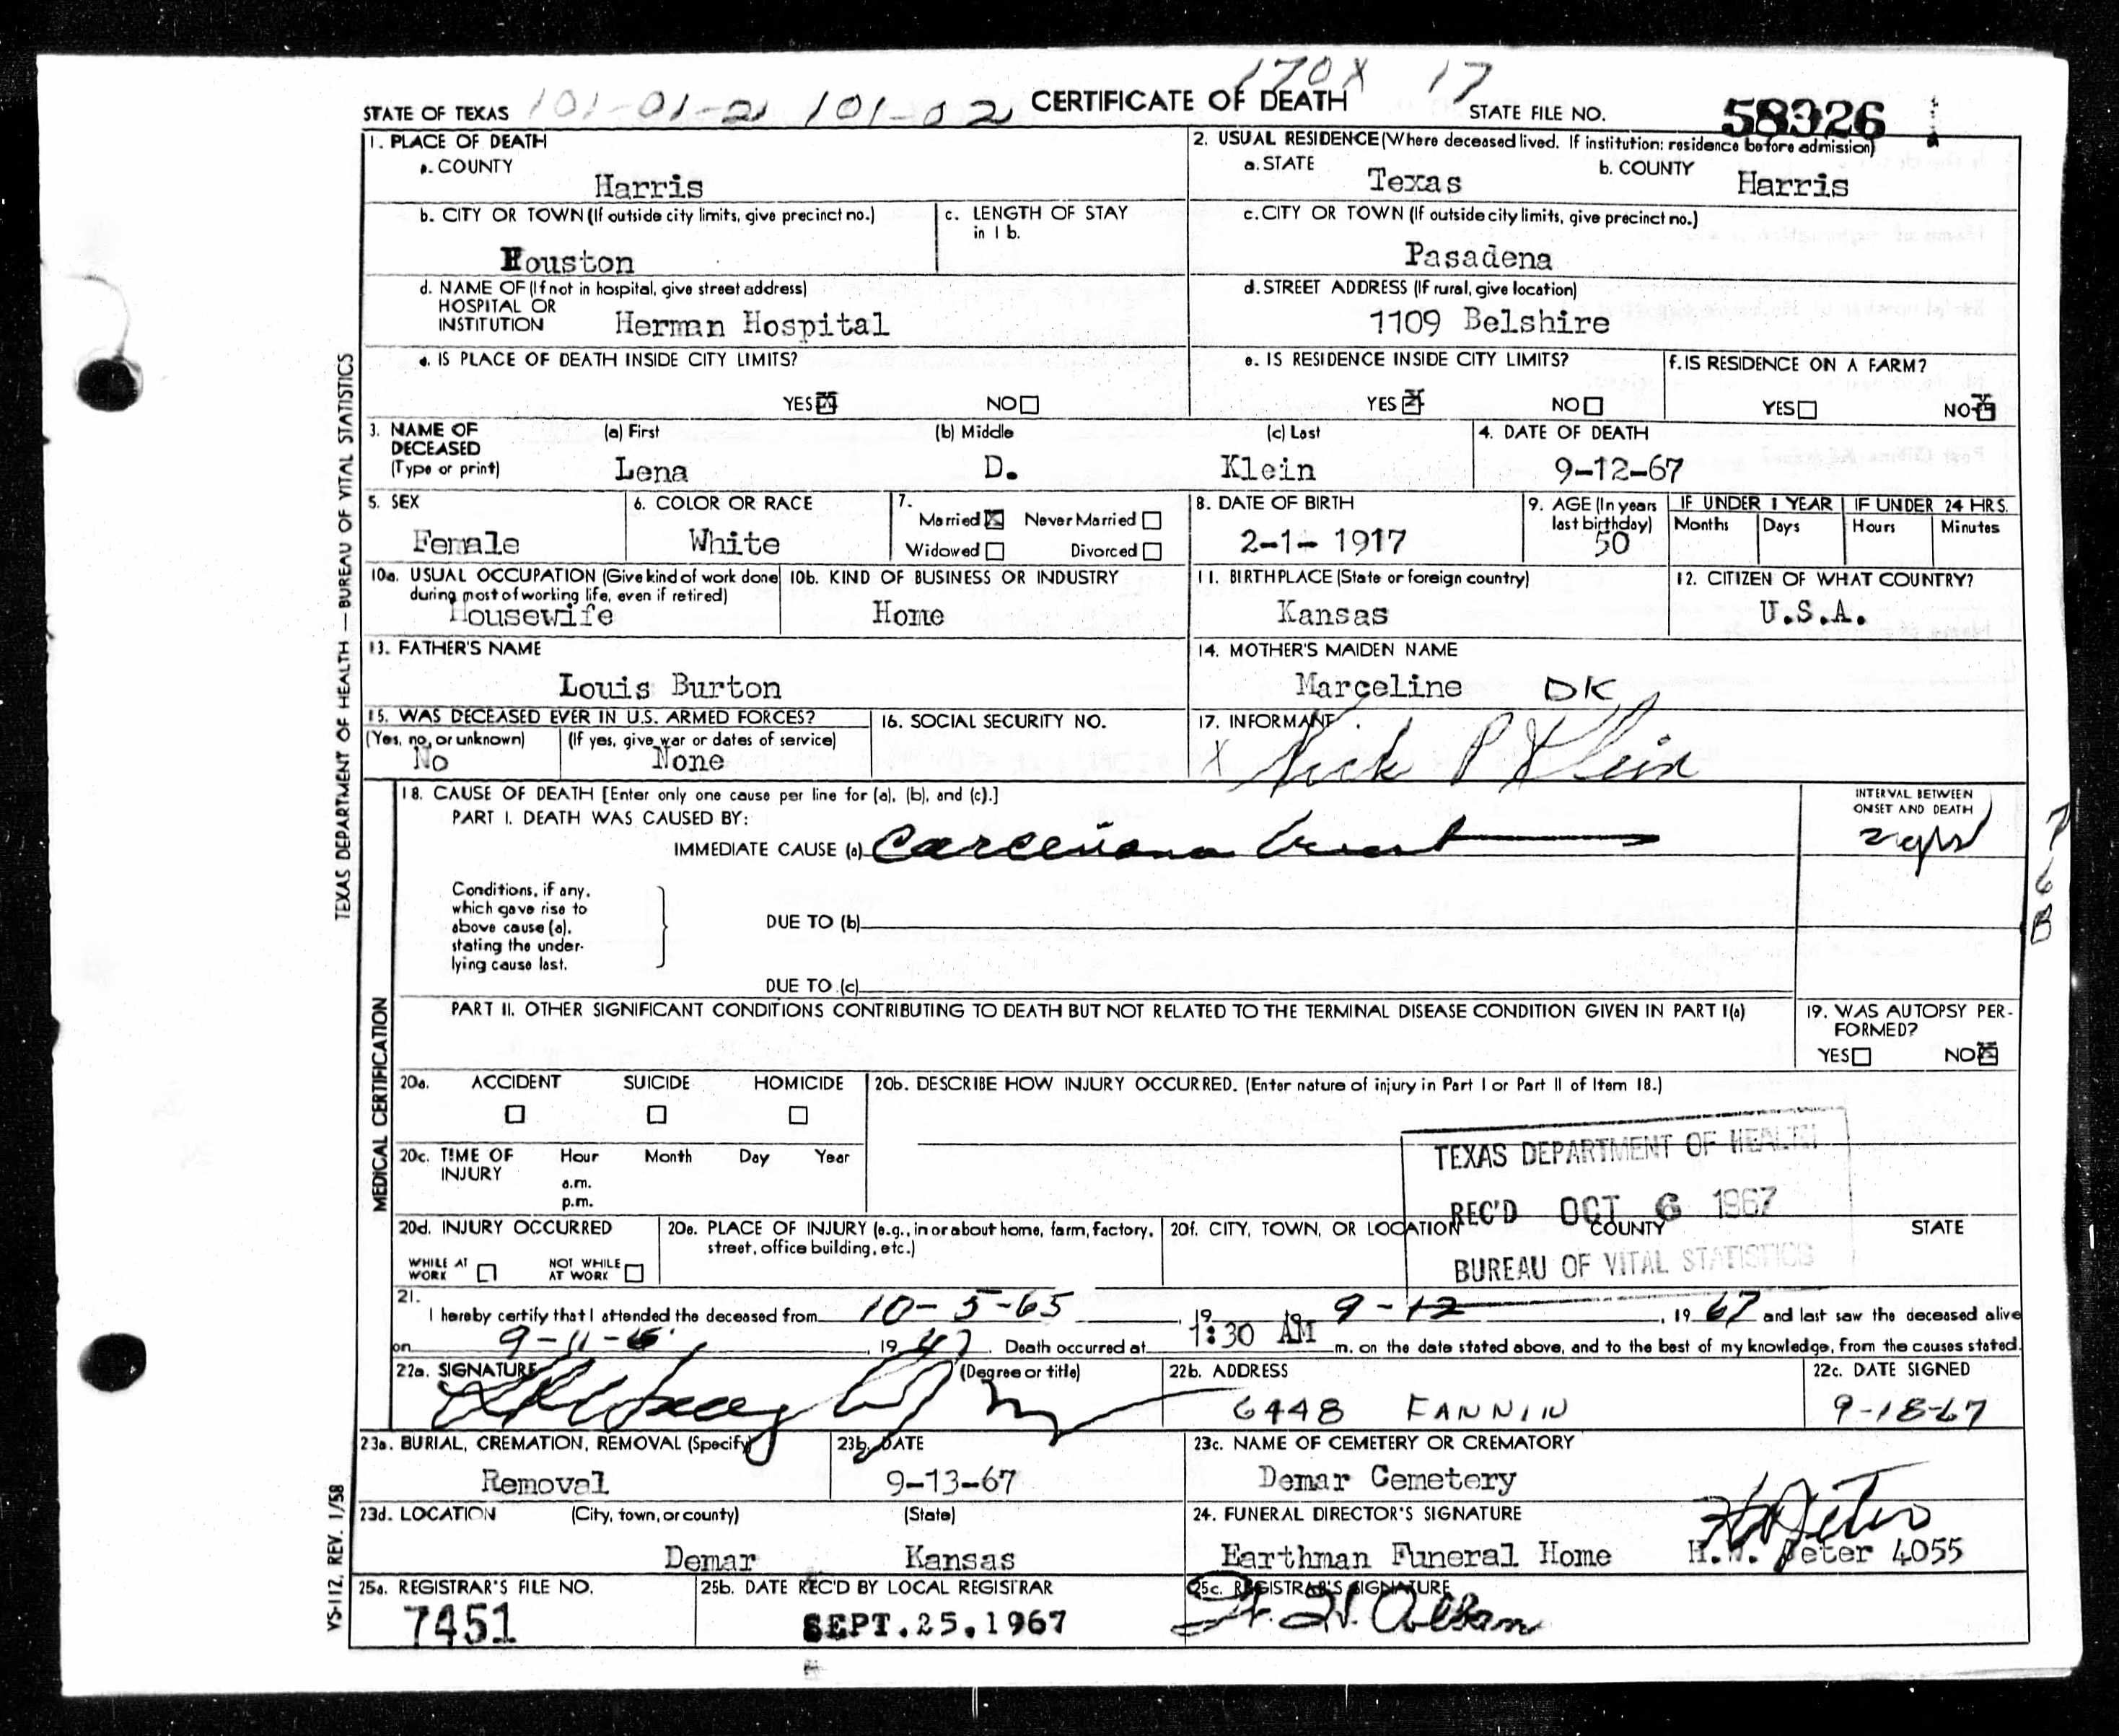 170X 17
STATE OF TEXAS 101-01-2 101-02 CERTIFICATE OF DEATH STATE FILE NO. 58326
1. PLACE OF DEATH
a. COUNTY
Harris
2. USUAL RESIDENCE (Where deceased lived. If institution: residence before admission)
a. STATE Texas b. COUNTY Harris
b. CITY OR TOWN (If outside city limits, give precinct no.)
Houston
c. LENGTH OF STAY
in 1 b.
c. CITY OR TOWN (If outside city limits, give precinct no.)
Pasadena
d. NAME OF (If not in hospital, give street address)
HOSPITAL OR
INSTITUTION Herman Hospital
d. STREET ADDRESS (If rural, give location)
1109 Belshire
e. IS PLACE OF DEATH INSIDE CITY LIMITS?
YES NO
e. IS RESIDENCE INSIDE CITY LIMITS?
YES NO
f. IS RESIDENCE ON A FARM?
YES NO
3. NAME OF
DECEASED
(Type or print)
(a) First
Lena
(b) Middle
D.
(c) Last
Klein
4. DATE OF DEATH
9-12-67
5. SEX
Female
6. COLOR OR RACE
White
7.
Married Never Married
Widowed Divorced
8. DATE OF BIRTH
2-1-1917
9. AGE (In years
last birthday)
50
IF UNDER 1 YEAR
Months Days
IF UNDER 24 HRS.
Hours Minutes
10a. USUAL OCCUPATION (Give kind of work done
during most of working life, even if retired)
Housewife
10b. KIND OF BUSINESS OR INDUSTRY
Home
11. BIRTHPLACE (State or foreign country)
Kansas
12. CITIZEN OF WHAT COUNTRY?
U.S.A.
13. FATHER'S NAME
Louis Burton
14. MOTHER'S MAIDEN NAME
Marceline DK
15. WAS DECEASED EVER IN U.S. ARMED FORCES?
(Yes, no, or unknown) (If yes, give war or dates of service)
No None
16. SOCIAL SECURITY NO.
17. INFORMANT
X Nick P Klein
MEDICAL CERTIFICATION
18. CAUSE OF DEATH [Enter only one cause per line for (a), (b), and (c).]
PART I. DEATH WAS CAUSED BY:
IMMEDIATE CAUSE (a) Carcinoma breast
INTERVAL BETWEEN
ONSET AND DEATH
2 yrs
Conditions, if any,
which gave rise to
above cause (a),
stating the under-
lying cause last.
DUE TO (b)
DUE TO (c)
PART II. OTHER SIGNIFICANT CONDITIONS CONTRIBUTING TO DEATH BUT NOT RELATED TO THE TERMINAL DISEASE CONDITION GIVEN IN PART I(a)
19. WAS AUTOPSY PER-
FORMED?
YES NO
20a. ACCIDENT SUICIDE HOMICIDE
20b. DESCRIBE HOW INJURY OCCURRED. (Enter nature of injury in Part I or Part II of Item 18.)
20c. TIME OF
INJURY
Hour Month Day Year
a.m.
p.m.
TEXAS DEPARTMENT OF HEALTH
REC'D OCT 6 1967
BUREAU OF VITAL STATISTICS
20d. INJURY OCCURRED
WHILE AT
WORK
NOT WHILE
AT WORK
20e. PLACE OF INJURY (e.g., in or about home, farm, factory,
street, office building, etc.)
20f. CITY, TOWN, OR LOCATION COUNTY STATE
21.
I hereby certify that I attended the deceased from 10-5-65, 19 to 9-12, 1967 and last saw the deceased alive
on 9-11-, 1967. Death occurred at 1:30 AM m. on the date stated above, and to the best of my knowledge, from the causes stated.
22a. SIGNATURE (Degree or title)
22b. ADDRESS
6448 FANNIN
22c. DATE SIGNED
9-18-67
23a. BURIAL, CREMATION, REMOVAL (Specify)
Removal
23b. DATE
9-13-67
23c. NAME OF CEMETERY OR CREMATORY
Demar Cemetery
23d. LOCATION (City, town, or county) (State)
Demar Kansas
24. FUNERAL DIRECTOR'S SIGNATURE
Earthman Funeral Home H.W. Jeter 4055
25a. REGISTRAR'S FILE NO.
7451
25b. DATE REC'D BY LOCAL REGISTRAR
SEPT.25,1967
25c. REGISTRAR'S SIGNATURE
TEXAS DEPARTMENT OF HEALTH — BUREAU OF VITAL STATISTICS
VS-112, REV. 1/58